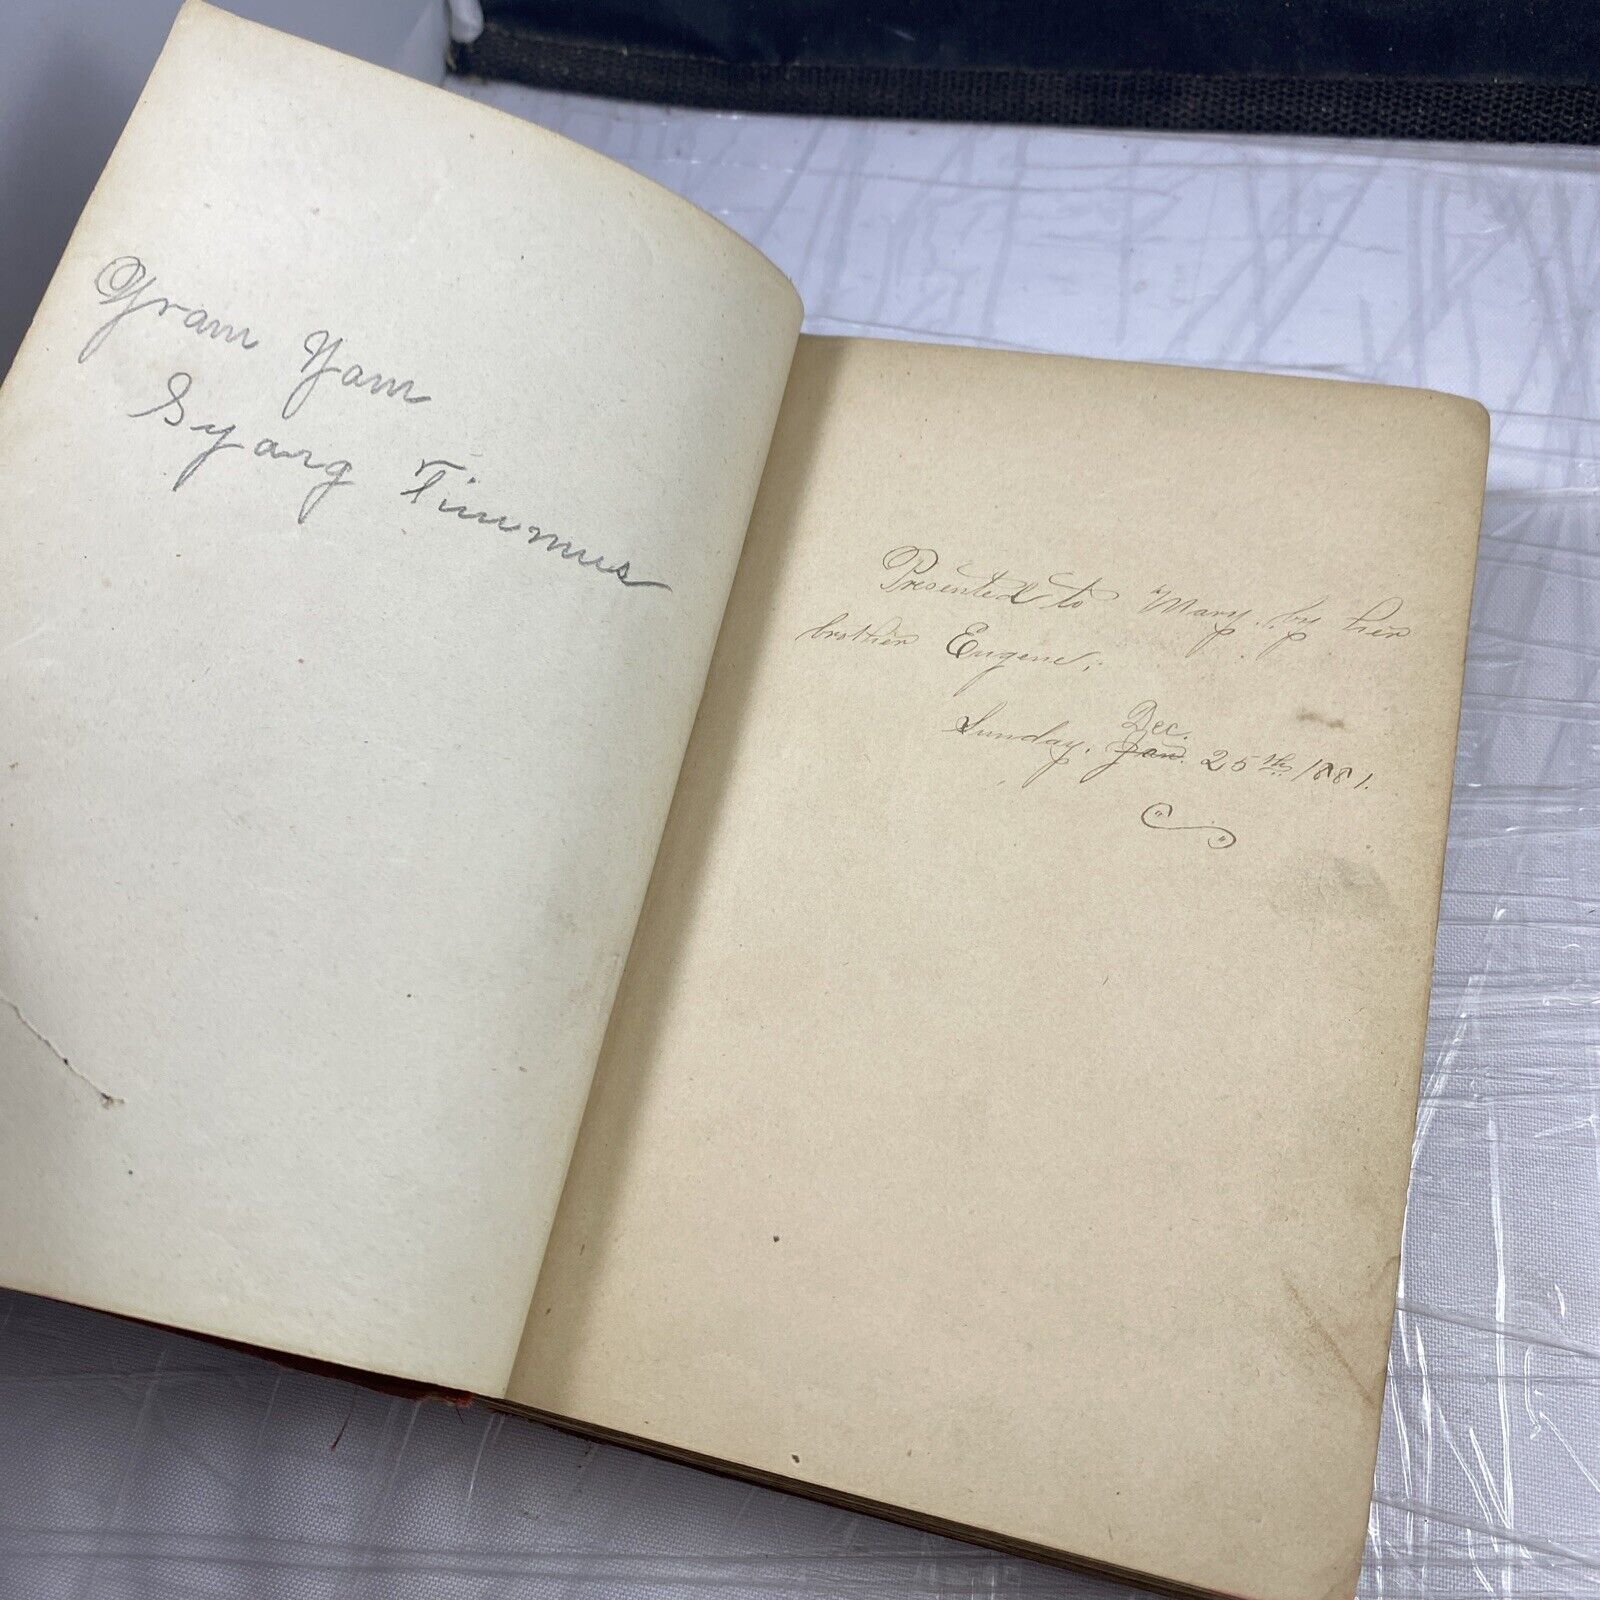 Yram Yam
Syang Tinumus
Presented to "Mary. by her
brother Eugene,
Dec.
Sunday, Jan. 25th 1881.